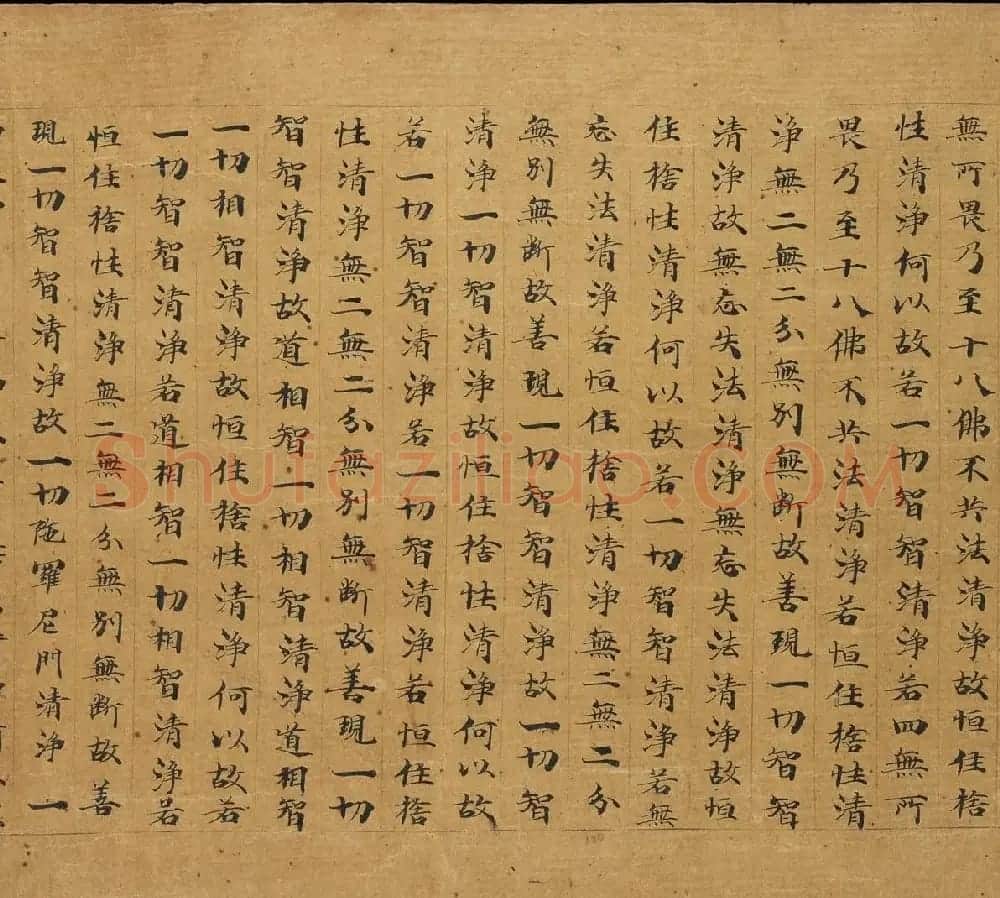 無所畏乃至十八佛不共法清淨故恒住捨
性清淨何以故若一切智智清淨若四無所
畏乃至十八佛不共法清淨若恒住捨性清
淨無二無二分無別無斷故善現一切智智
清淨故無忘失法清淨無忘失法清淨故恒
住捨性清淨何以故若一切智智清淨若無
忘失法清淨若恒住捨性清淨無二無二分
無別無斷故善現一切智智清淨故一切智
清淨一切智清淨故恒住捨性清淨何以故
若一切智智清淨若一切智清淨若恒住捨
性清淨無二無二分無別無斷故善現一切
智智清淨故道相智一切相智清淨道相智
一切相智清淨故恒住捨性清淨何以故若
一切智智清淨若道相智一切相智清淨若
恒住捨性清淨無二無二分無別無斷故善
現一切智智清淨故一切陁羅尼門清淨一
Shufaziliao.COM